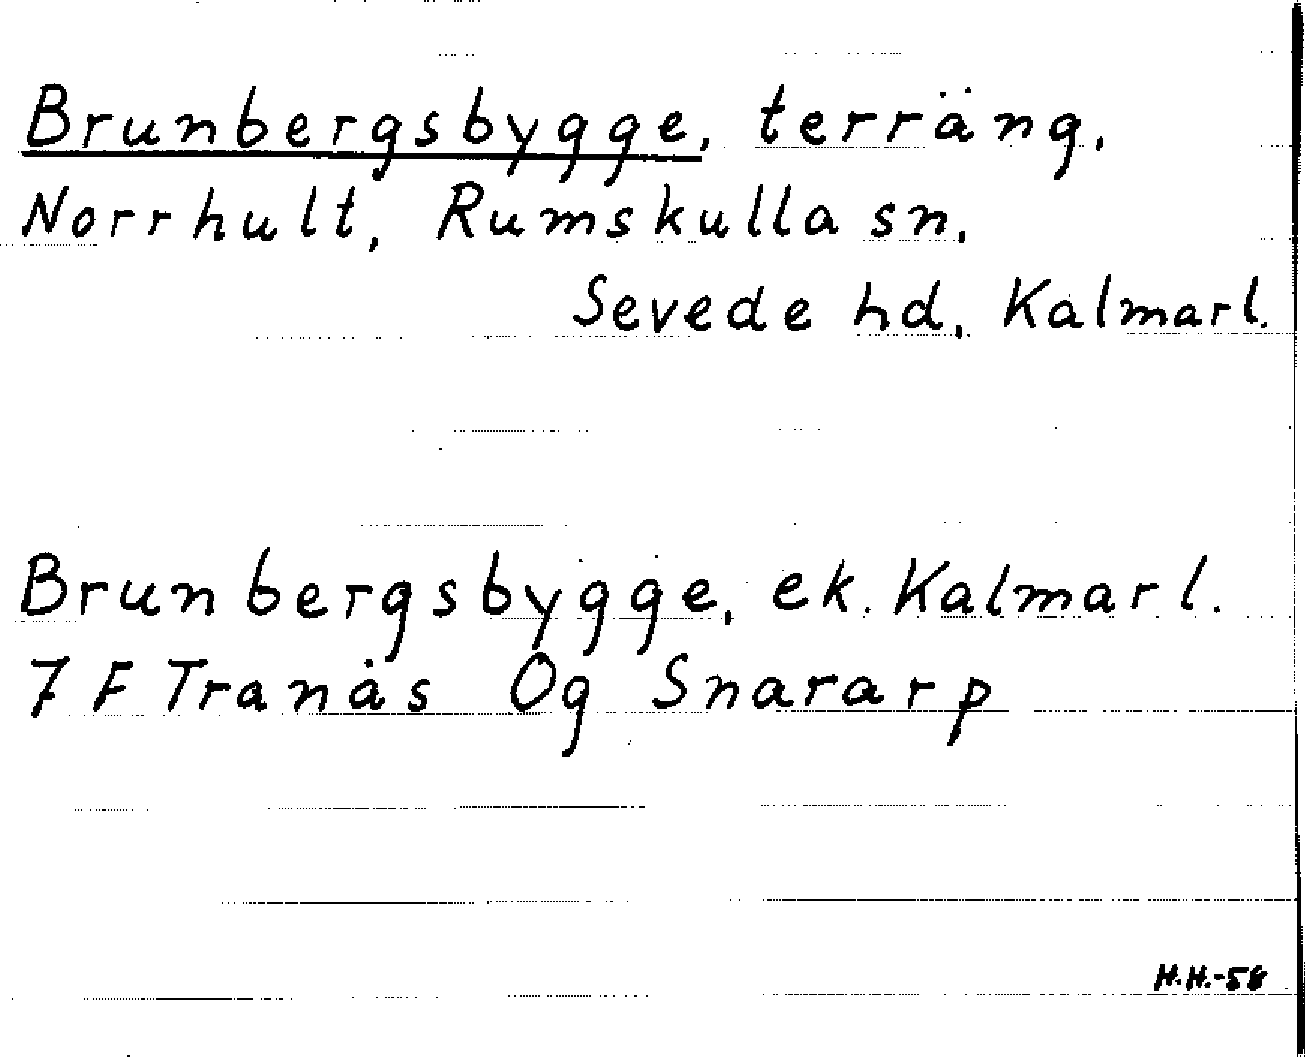 Brunbergsbygge, terräng,
Norrhult, Rumskulla sn,
Sevede hd, Kalmarl.
Brunbergsbygge, ek. Kalmarl.
7 F Tranås Og Snararp
H.H.-58